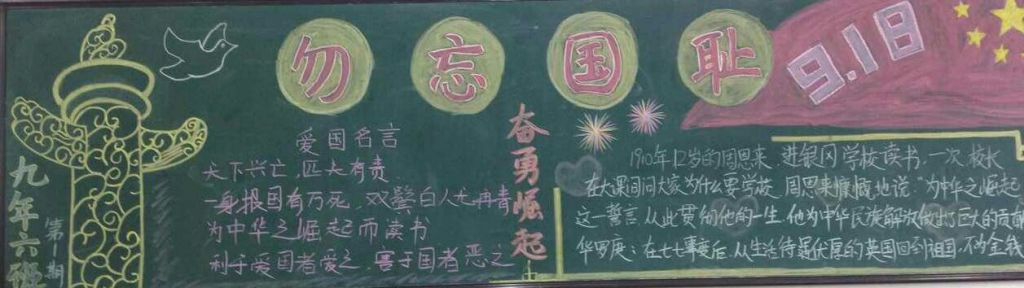 勿忘国耻
9.18
奋勇崛起
爱国名言
天下兴亡,匹夫有责
一身报国有万死,双鬓白人
为中华之崛起而读书
利于爱国者爱之,害于国者恶之
1910年12岁的周恩来,进银冈学校读书,一次校长
在大课间问大家为什么要学校,周恩来慷慨地说"为中华之崛起
这一誓言从此贯彻他的一生,他为中华民族解放做出了巨大的贡献
华罗庚:在七七事变后,从生活待遇优厚的英国回到祖国,不为金钱
九年六班
第1期